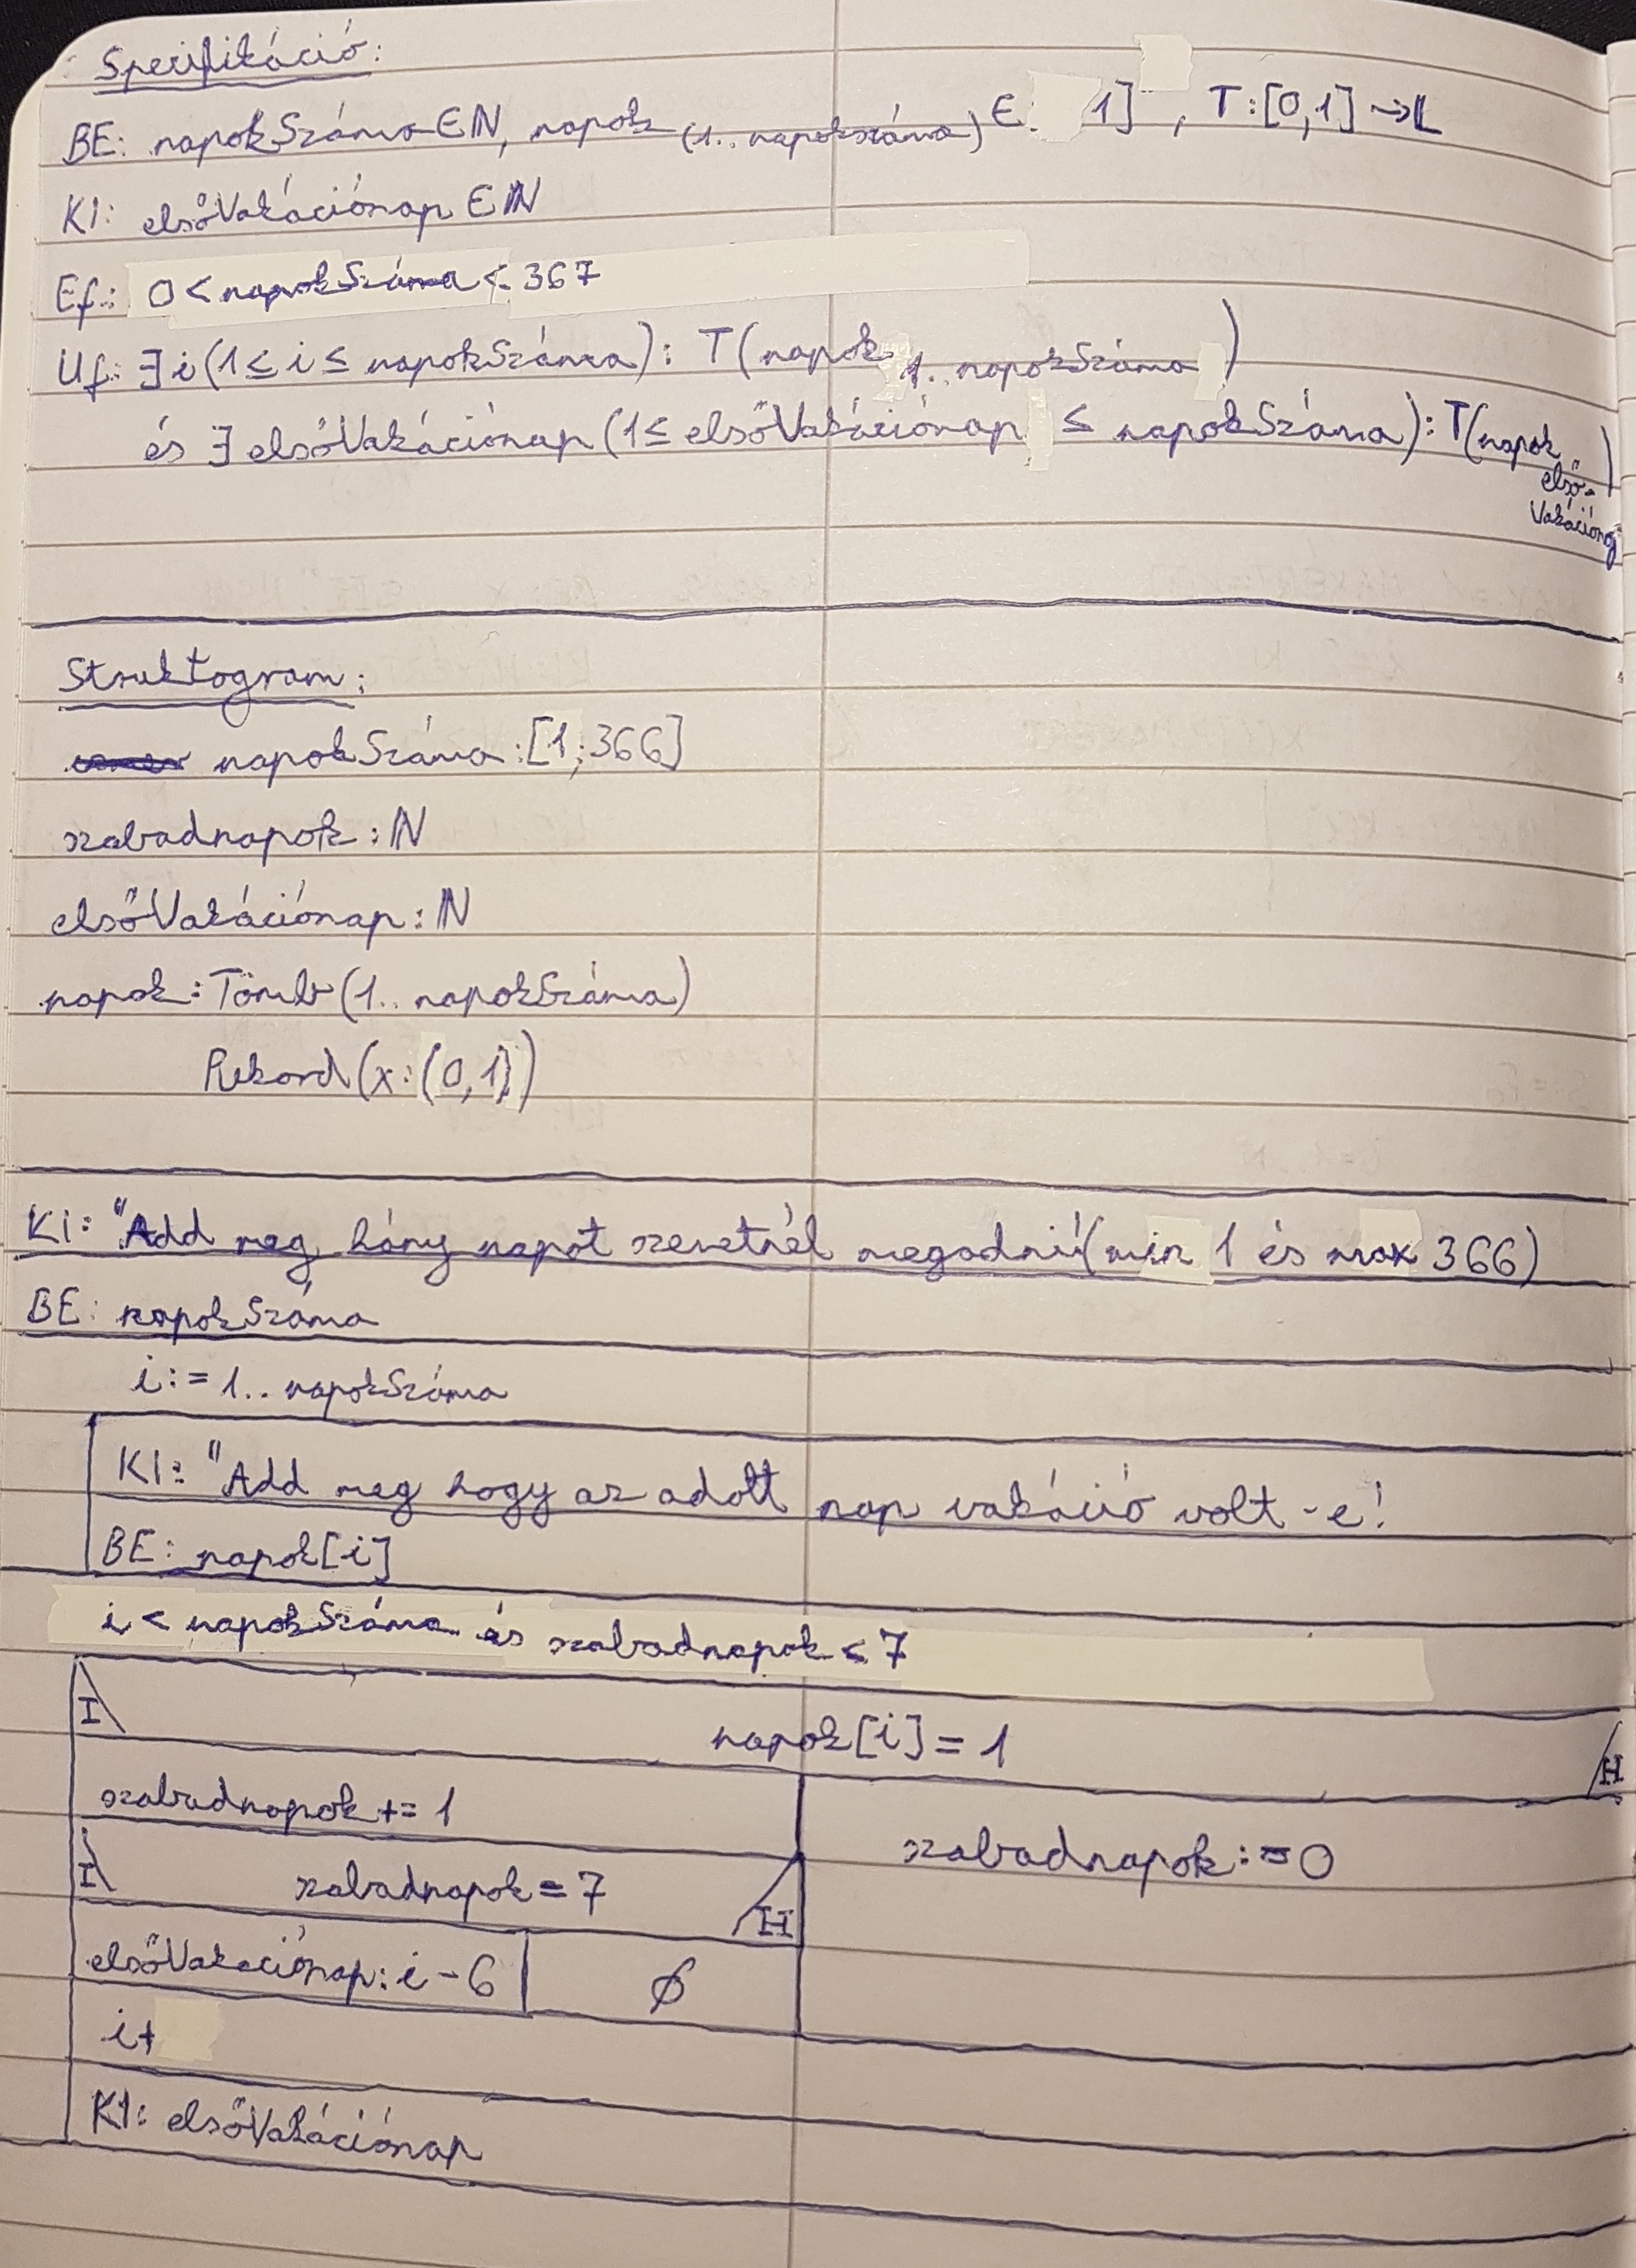 Specifikáció:
BE: napokSzáma∈ℕ, napok(1..napokszáma)∈ 1] , T:[0,1]→𝕃
KI: elsőVakációnap ∈ℕ
Ef.: 0<napokSzáma<367
Uf: ∃i(1≤i≤napokSzáma): T(napok 1..napokSzáma)
és ∃elsőVakációnap(1≤elsőVakációnap ≤ napokSzáma): T(napok első-
Vakációnap)
Struktogram:
napokSzáma:[1;366]
szabadnapok:ℕ
elsőVakációnap:ℕ
napok:Tömb(1..napokSzáma)
Rekord(x:(0,1))
KI: "Add meg hány napot szeretnél megadni!(min 1 és max 366)
BE: napokSzáma
i:=1..napokSzáma
KI: "Add meg hogy az adott nap vakáció volt-e!
BE: napok[i]
i<napokSzáma és szabadnapok<7
I napok[i]=1 H
szabadnapok+=1
szabadnapok:=0
I szabadnapok=7 H
elsőVakációnap:i-6 ∅
i+
KI: elsőVakációnap